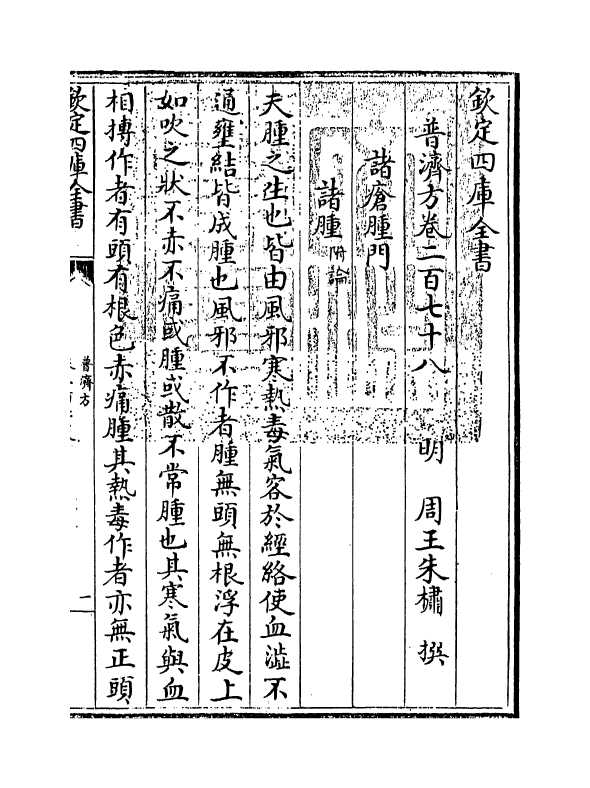 欽定四庫全書
普濟方卷二百七十八　明　周王朱橚　撰
諸瘡腫門
諸腫附論
夫腫之生也皆由風邪寒熱毒氣客於經絡使血澁不
通壅結皆成腫也風邪不作者腫無頭無根浮在皮上
如吹之狀不赤不痛或腫或散不常腫也其寒氣與血
相搏作者有頭有根色赤痛腫其熱毒作者亦無正頭
欽定四庫全書
普濟方